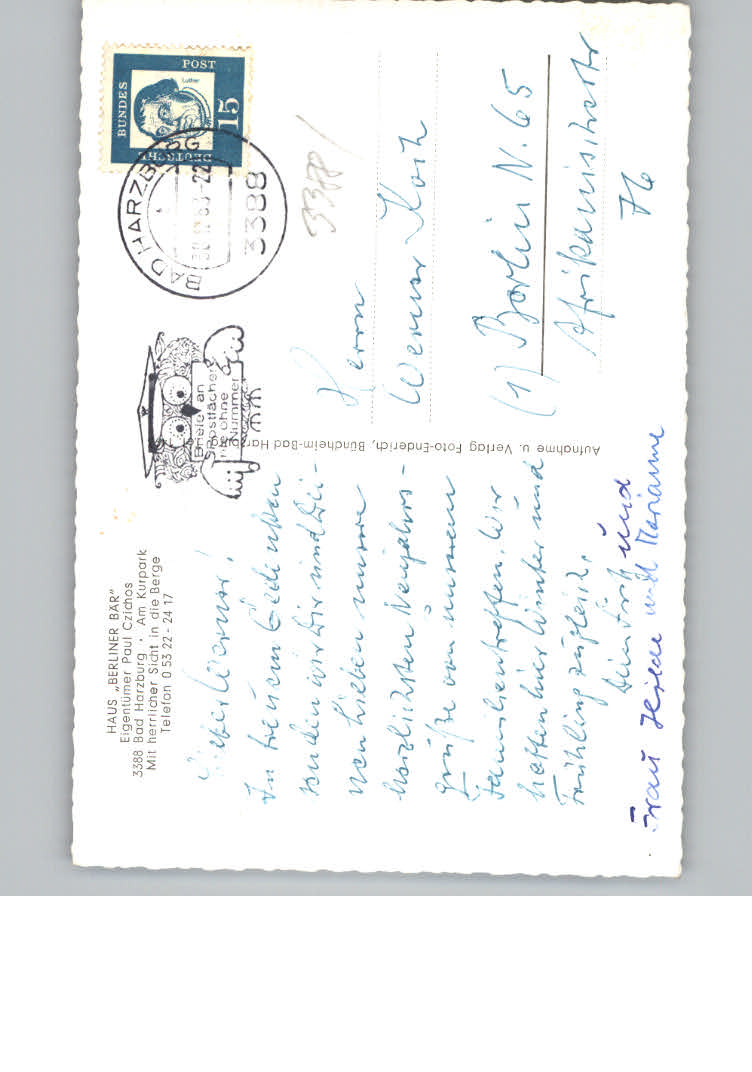 HAUS „BERLINER BÄR"
Eigentümer Paul Czichos
3388 Bad Harzburg · Am Kurpark
Mit herrlicher Sicht in die Berge
Telefon 0 53 22 - 24 17
Lieber Werner!
In treuem Gedenken
senden wir Dir und Dei-
nen Lieben unsere
herzlichsten Neujahrs-
grüße von unserem
Familientreffen. Wir
hatten hier Winter und
Frühling zugleich.
Dein Fritz und
Frau Hilde und Marianne
Aufnahme u. Verlag Foto-Enderich, Bündheim-Bad Harzburg
Briefe an
Postfächer
nie ohne
Nummer
BAD HARZBURG
3388
DEUTSCHE
BUNDES
POST
Luther
15
3388
Herrn
Werner Koch
(1) Berlin N. 65
Afrikanischestr
76